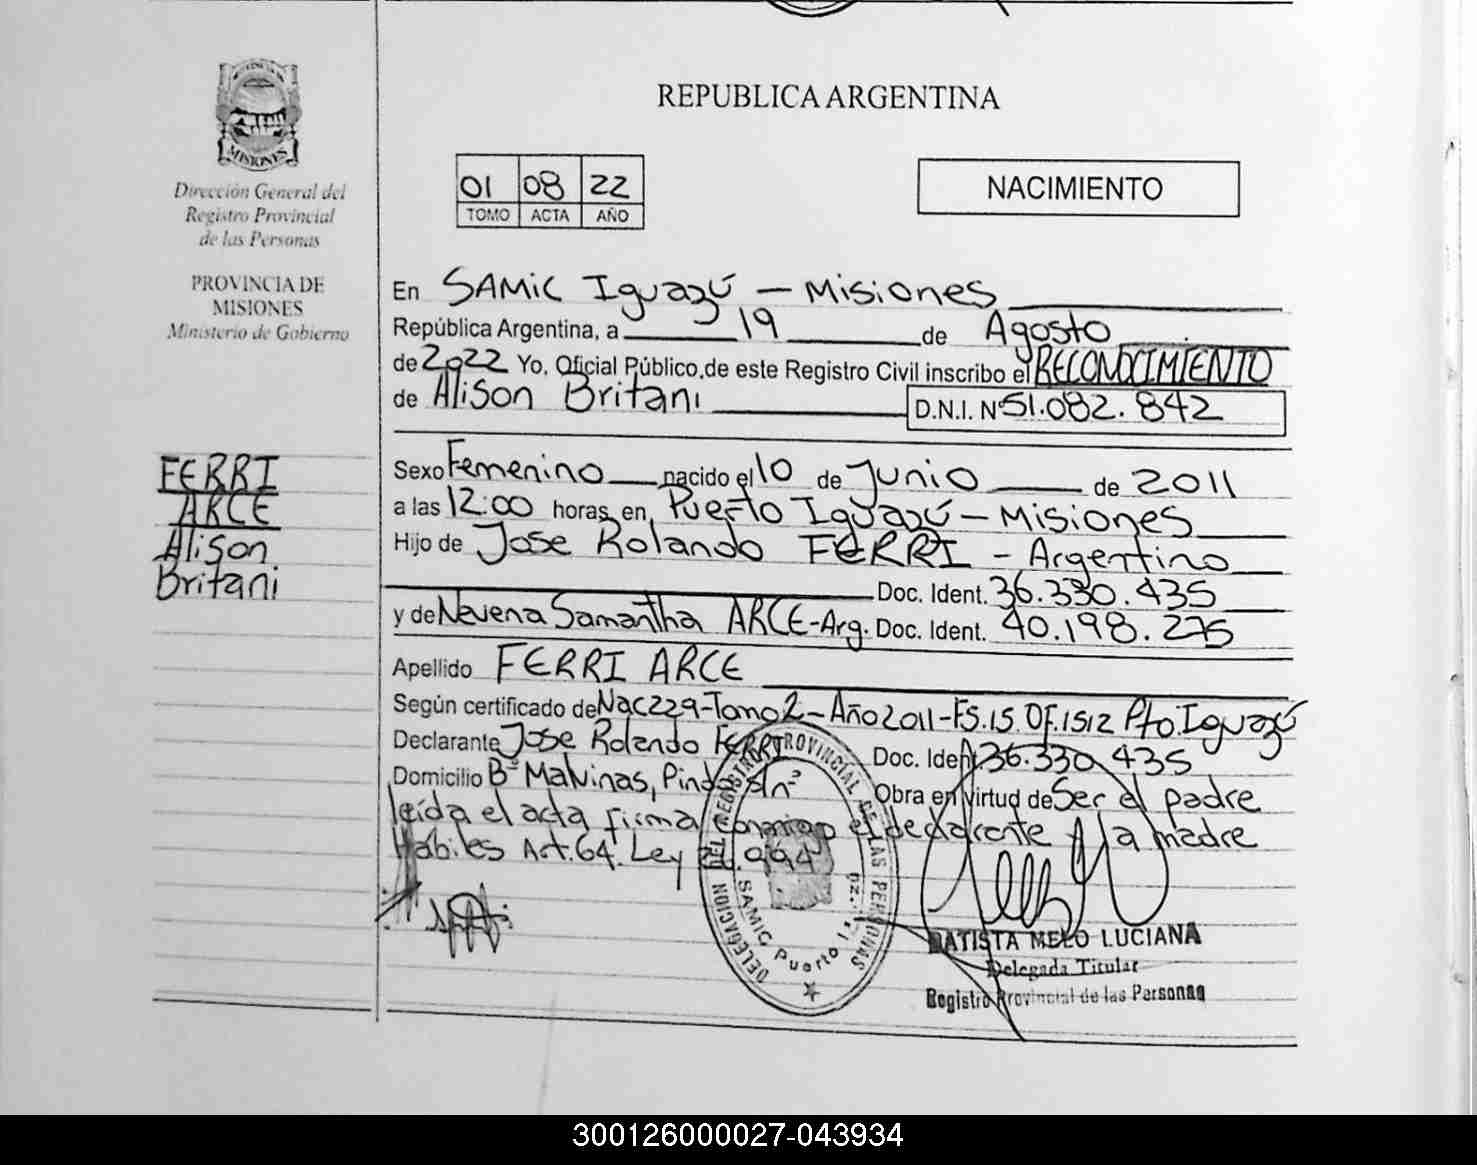 REPUBLICA ARGENTINA
MISIONES
Dirección General del
Registro Provincial
de las Personas
PROVINCIA DE
MISIONES
Ministerio de Gobierno
01 08 22
TOMO ACTA AÑO
NACIMIENTO
En SAMIC Iguazú - Misiones
República Argentina, a 19 de Agosto
de 2022 Yo, Oficial Público de este Registro Civil inscribo el RECONOCIMIENTO
de Alison Britani D.N.I. Nº 51.082.842
FERRI
ARCE
Alison
Britani
Sexo Femenino nacido el 10 de Junio de 2011
a las 12:00 horas, en Puerto Iguazú - Misiones
Hijo de Jose Rolando FERRI - Argentino
Doc. Ident. 36.330.435
y de Nevena Samantha ARCE-Arg. Doc. Ident. 40.198.275
Apellido FERRI ARCE
Según certificado de Nac 229-Tomo 2-Año 2011-FS.15 OF.1512 Pto. Iguazú
Declarante Jose Rolando FERRI Doc. Ident. 36.330.435
Domicilio Bº Malvinas, Pindo s/nº Obra en virtud de Ser el padre
leída el acta firma conmigo el declarante y la madre
Hábiles Art.64. Ley 994
DELEGACION DEL REGISTRO PROVINCIAL DE LAS PERSONAS
SAMIC Puerto
BATISTA MELO LUCIANA
Delegada Titular
Registro Provincial de las Personas
300126000027-043934